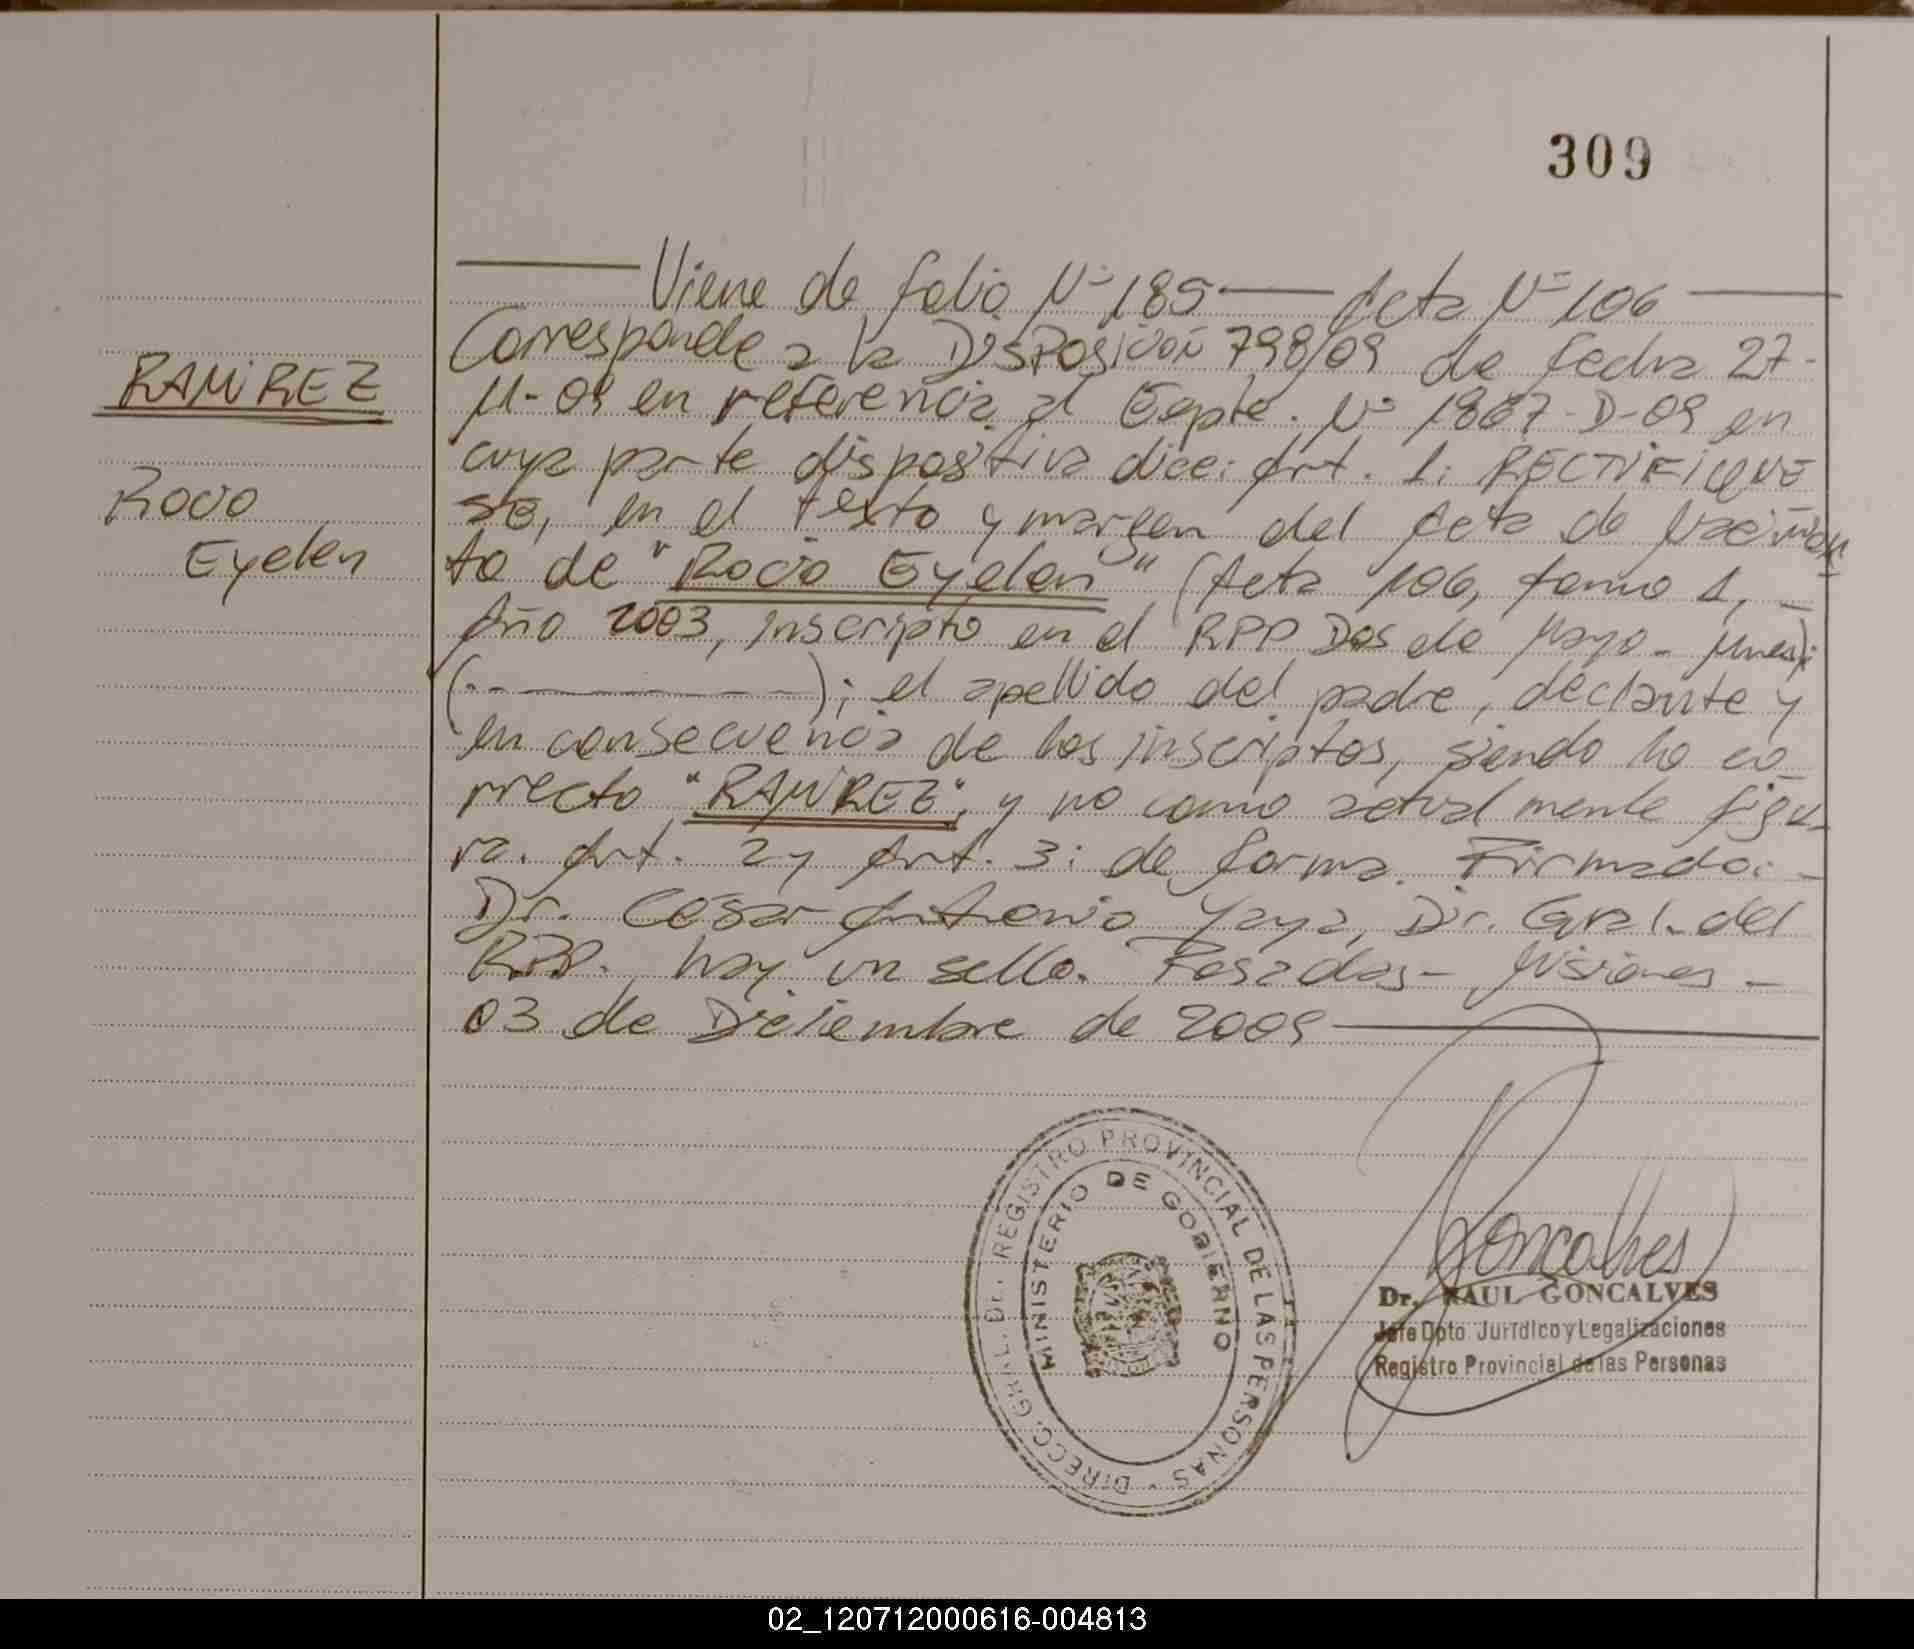 309
Viene de folio Nº 185 — Acta Nº 106 —
Corresponde a la DISPOSICIÓN 798/09 de fecha 27-
RAMIREZ
11-09 en referencia al Expte. Nº 1867-D-09 en
cuya parte dispositiva dice: Art. 1: RECTIFIQUE
Rocio
SE, en el texto y margen del Acta de Nacimien
Eyelen
to de "Rocio Eyelen" (Acta 106, tomo 1, -
Año 2003, inscripto en el RPP Dos de Mayo - Mnes);
(- - ————); el apellido del padre, declante y
en consecuencia de los inscriptos, siendo lo co_
rrecto "RAMIREZ", y no como actualmente figu_
ra. Art. 2 y Art. 3: de forma. Firmado: -
Dr. César Antonio Yaya, Dir. Gral. del
RPP. hay un sello. Posadas - Misiones -
03 de Diciembre de 2009 —
DIRECC. GRAL. DEL REGISTRO PROVINCIAL DE LAS PERSONAS
MINISTERIO DE GOBIERNO
Goncalves
Dr. RAUL GONCALVES
Jefe Dpto. Jurídico y Legalizaciones
Registro Provincial de las Personas
02_120712000616-004813